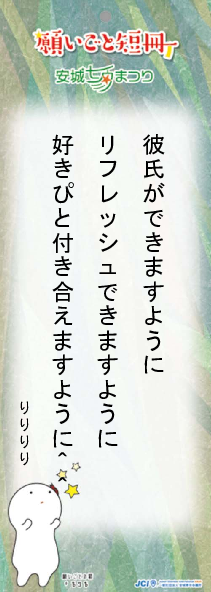 願いごと短冊
安城七夕まつり
彼氏ができますように
リフレッシュできますように
好きぴと付き合えますように^ ^
りりりり
JCI